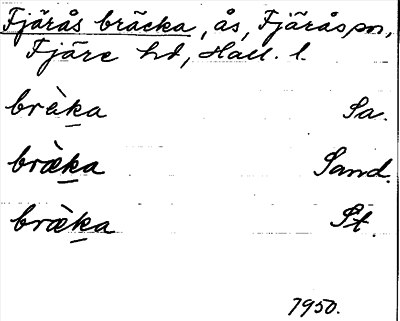 Fjärås bräcka, ås, Fjärås sn,
Fjäre hd, Hall. l.
brèka Sa.
bræ̀ka Sand.
bræ̀ka St.
1950.